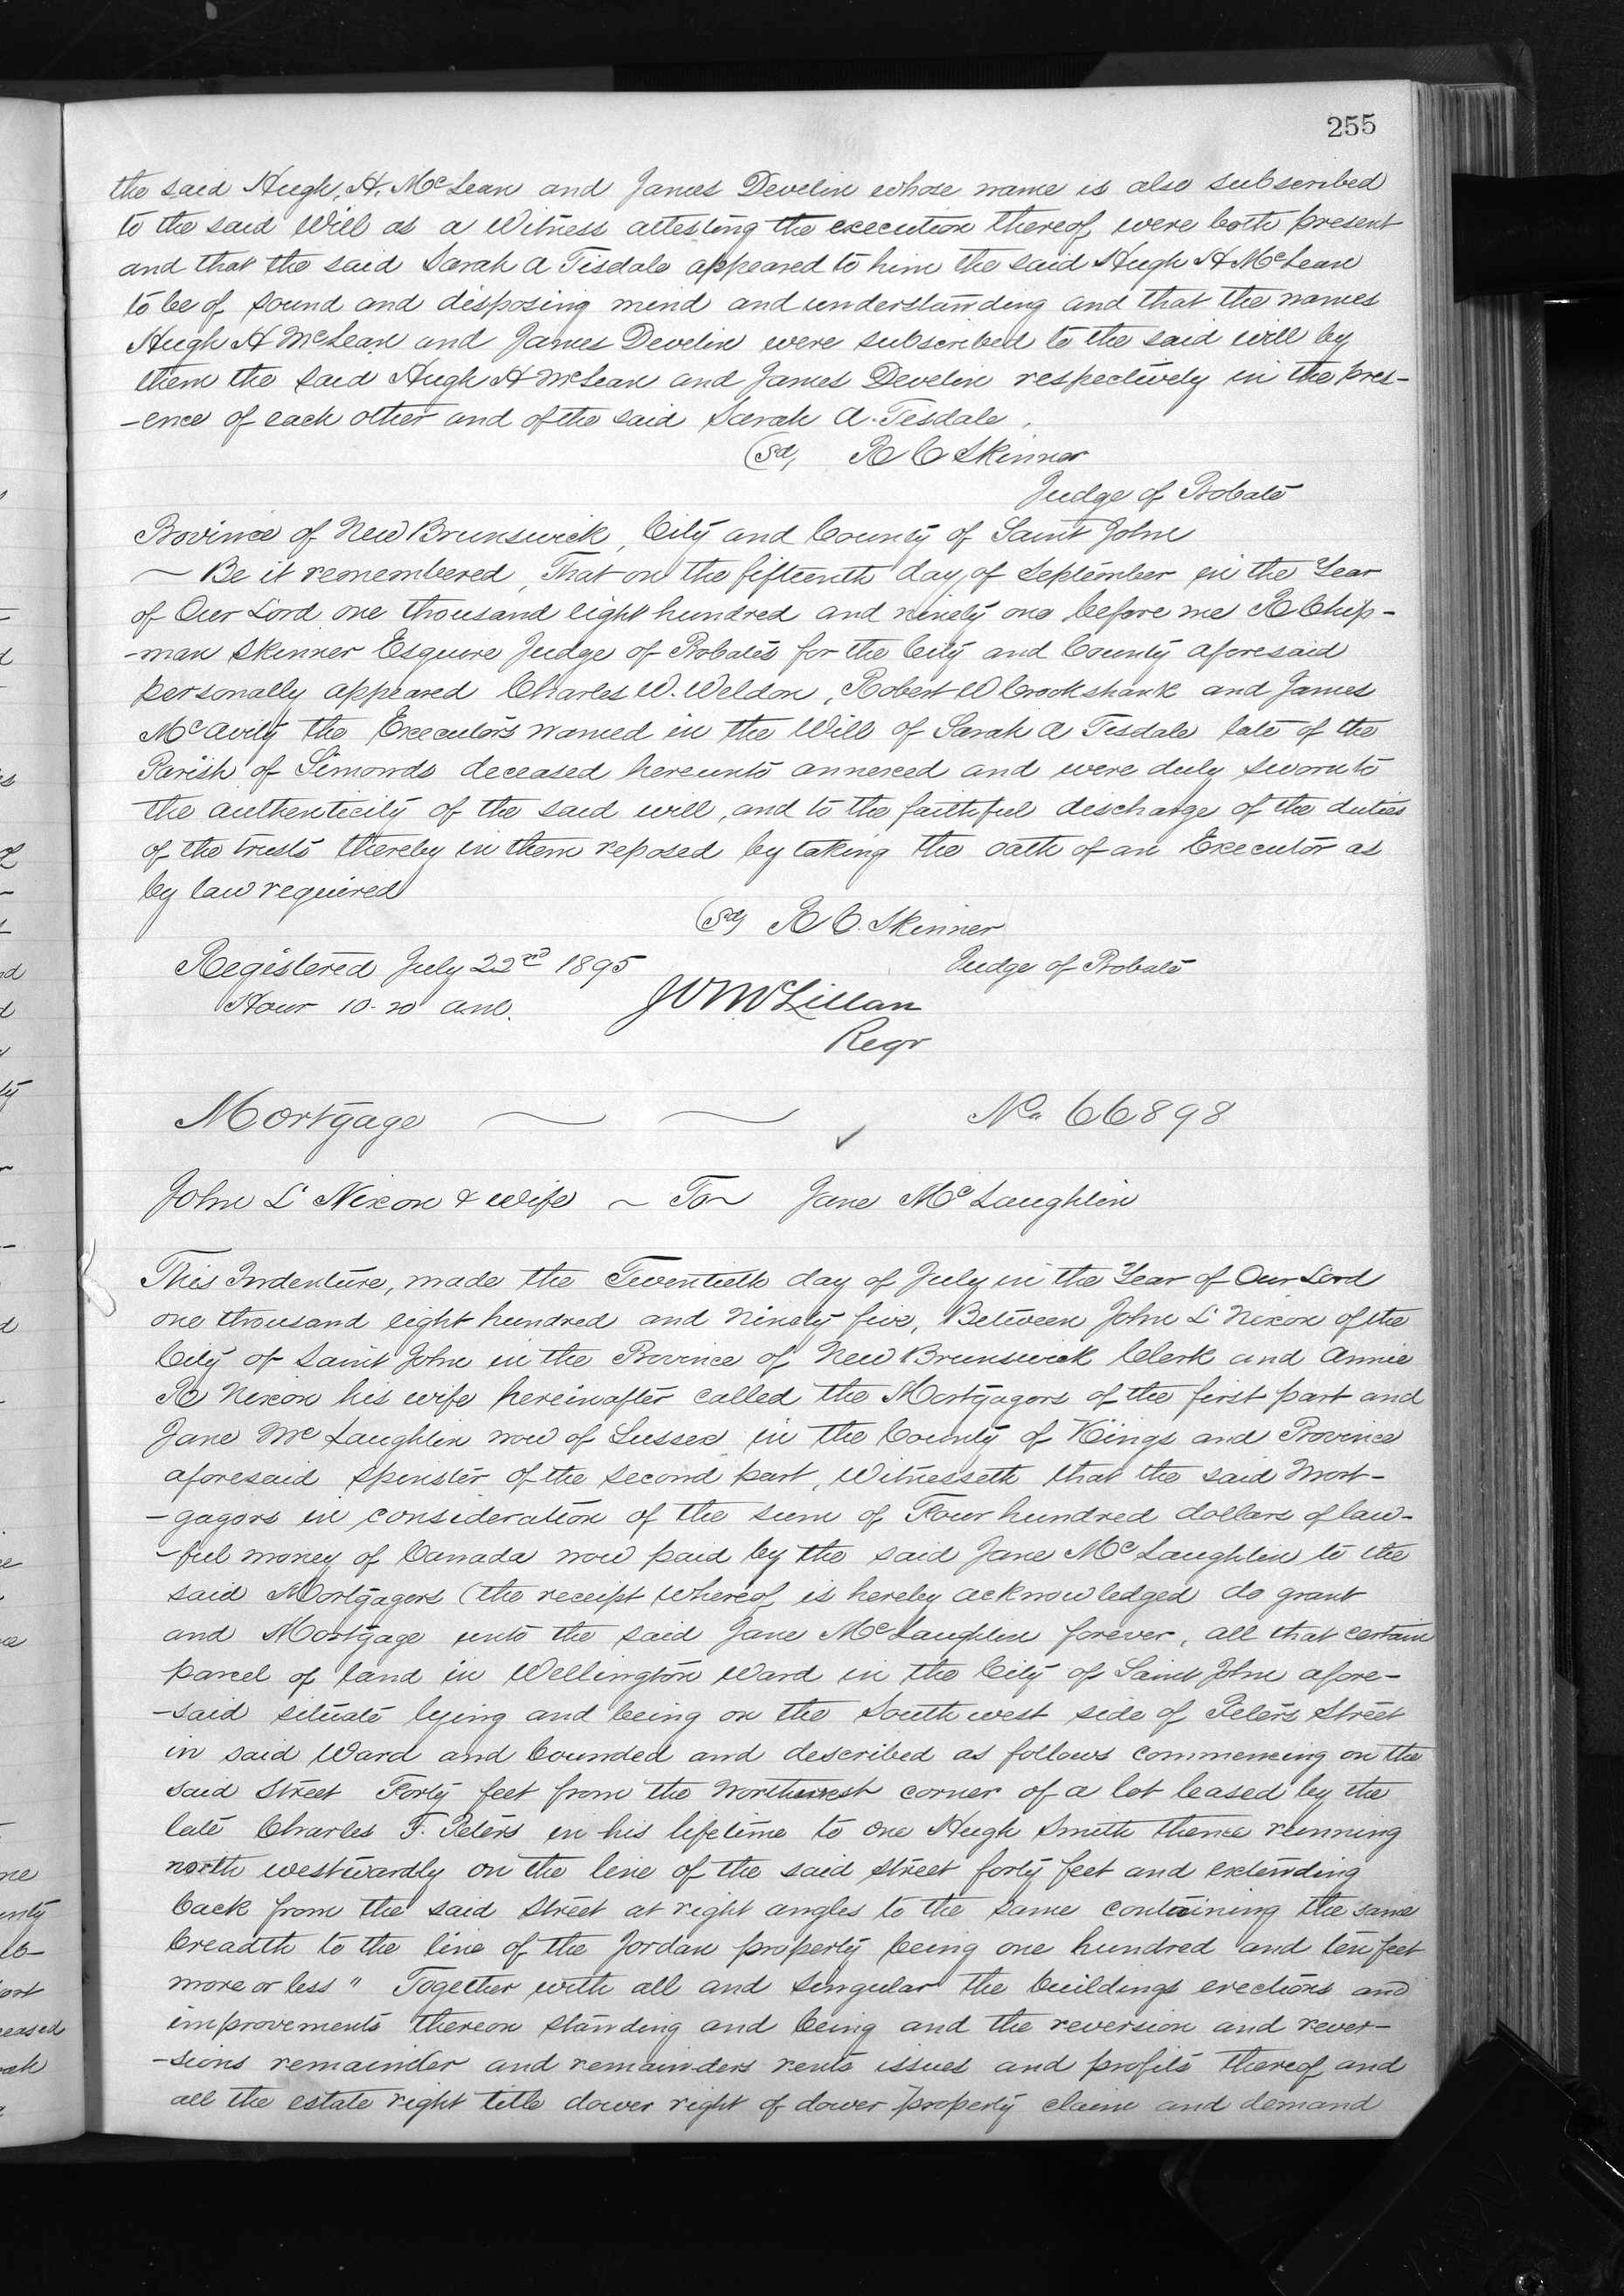 255
the said Hugh, H. McLean and James Develin whose name is also subscribed
to the said Will as a Witness attesting the execution thereof, were both present
and that the said Sarah A Tisdale appeared to him the said Hugh H McLean
to be of sound and disposing mind and understanding and that the names
Hugh H McLean and James Develin were subscribed to the said will by
them the said Hugh H McLean and James Develin respectively in the pres-
-ence of each other and of the said Sarah A. Tisdale.
(Sd, R C Skinner
Judge of Probate
Province of New Brunswick, City and County of Saint John
~ Be it remembered, That on the fifteenth day of September in the Year
of Our Lord one thousand eight hundred and ninety one before me R Chip-
-man Skinner Esquire Judge of Probates for the City and County aforesaid
personally appeared Charles W. Weldon, Robert W Crookshank and James
McAvity the Executors named in the Will of Sarah A Tisdale late of the
Parish of Simonds deceased hereunto annexed and were duly sworn to
the authenticity of the said will, and to the faithful descharge of the duties
of the trusts thereby in them reposed by taking the oath of an Executor as
by law required
(Sd) R C. Skinner
Registered July 22nd 1895 Judge of Probate
Hour 10-20 am. J V McLellan
Regr
Mortgage ~ ~ No 66898
✓
John L' Nixon & wife ~ To ~ Jane McLaughlin
This Indenture, made the Twentieth day of July in the Year of Our Lord
one thousand eight hundred and Ninety five, Between John L' Nixon of the
City of Saint John in the Province of New Brunswick Clerk and Annie
R Nixon his wife hereinafter called the Mortgagors of the first part and
Jane McLaughlin now of Sussex in the County of Kings and Province
aforesaid spinster of the second part, Witnesseth that the said Mort-
-gagors in consideration of the sum of Four hundred dollars of law-
-ful money of Canada now paid by the said Jane McLaughlin to the
said Mortgagors (the receipt whereof is hereby acknowledged do grant
and Mortgage unto the said Jane McLaughlin forever, all that certain
parcel of land in Wellington Ward in the City of Saint John afore-
-said situate lying and being on the South west side of Peters Street
in said Ward and bounded and described as follows commencing on the
said Street Forty feet from the Northwest corner of a lot leased by the
late Charles F. Peters in his lifetime to one Hugh Smith thence running
north westwardly on the line of the said street forty feet and extending
back from the said Street at right angles to the same containing the same
breadth to the line of the Jordan property being one hundred and ten feet
more or less " Together with all and singular the buildings erections and
improvements thereon standing and being and the reversion and rever-
-sions remainder and remainders rents issues and profits thereof and
all the estate right title dower right of dower property claim and demand